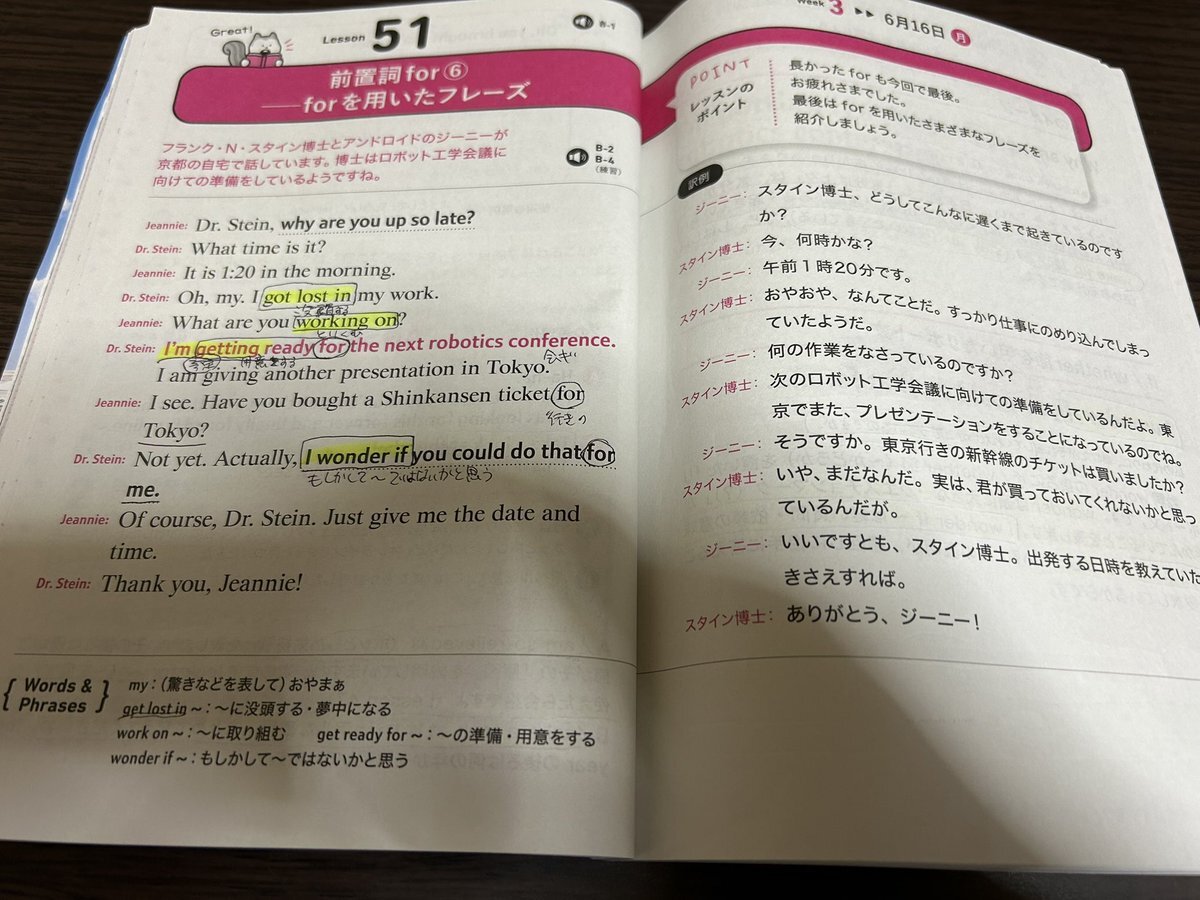 Great!
Lesson 51
前置詞for⑥
――forを用いたフレーズ
フランク・N・スタイン博士とアンドロイドのジーニーが
京都の自宅で話しています。博士はロボット工学会議に
向けての準備をしているようですね。
B-2
B-4
(練習)
Jeannie: Dr. Stein, why are you up so late?
Dr. Stein: What time is it?
Jeannie: It is 1:20 in the morning.
Dr. Stein: Oh, my. I got lost in my work.
没頭する
Jeannie: What are you working on?
とりくむ
Dr. Stein: I'm getting ready for the next robotics conference.
用意をする
I am giving another presentation in Tokyo.
Jeannie: I see. Have you bought a Shinkansen ticket for
行きの
Tokyo?
Dr. Stein: Not yet. Actually, I wonder if you could do that for
もしかして〜ではないかと思う
me.
Jeannie: Of course, Dr. Stein. Just give me the date and
time.
Dr. Stein: Thank you, Jeannie!
Words & Phrases
my:(驚きなどを表して)おやまぁ
get lost in ~:〜に没頭する・夢中になる
work on ~:〜に取り組む get ready for ~:〜の準備・用意をする
wonder if ~:もしかして〜ではないかと思う
Week 3 ▶▶ 6月16日 月
POINT
レッスンの
ポイント
長かったforも今回で最後。
お疲れさまでした。
最後はforを用いたさまざまなフレーズを
紹介しましょう。
訳例
ジーニー:スタイン博士、どうしてこんなに遅くまで起きているのです
か?
スタイン博士:今、何時かな?
ジーニー:午前1時20分です。
スタイン博士:おやおや、なんてことだ。すっかり仕事にのめり込んでしまっ
ていたようだ。
ジーニー:何の作業をなさっているのですか?
スタイン博士:次のロボット工学会議に向けての準備をしているんだよ。東
京でまた、プレゼンテーションをすることになっているのでね。
ジーニー:そうですか。東京行きの新幹線のチケットは買いましたか?
スタイン博士:いや、まだなんだ。実は、君が買っておいてくれないかと思っ
ているんだが。
ジーニー:いいですとも、スタイン博士。出発する日時を教えていた
きさえすれば。
スタイン博士:ありがとう、ジーニー!